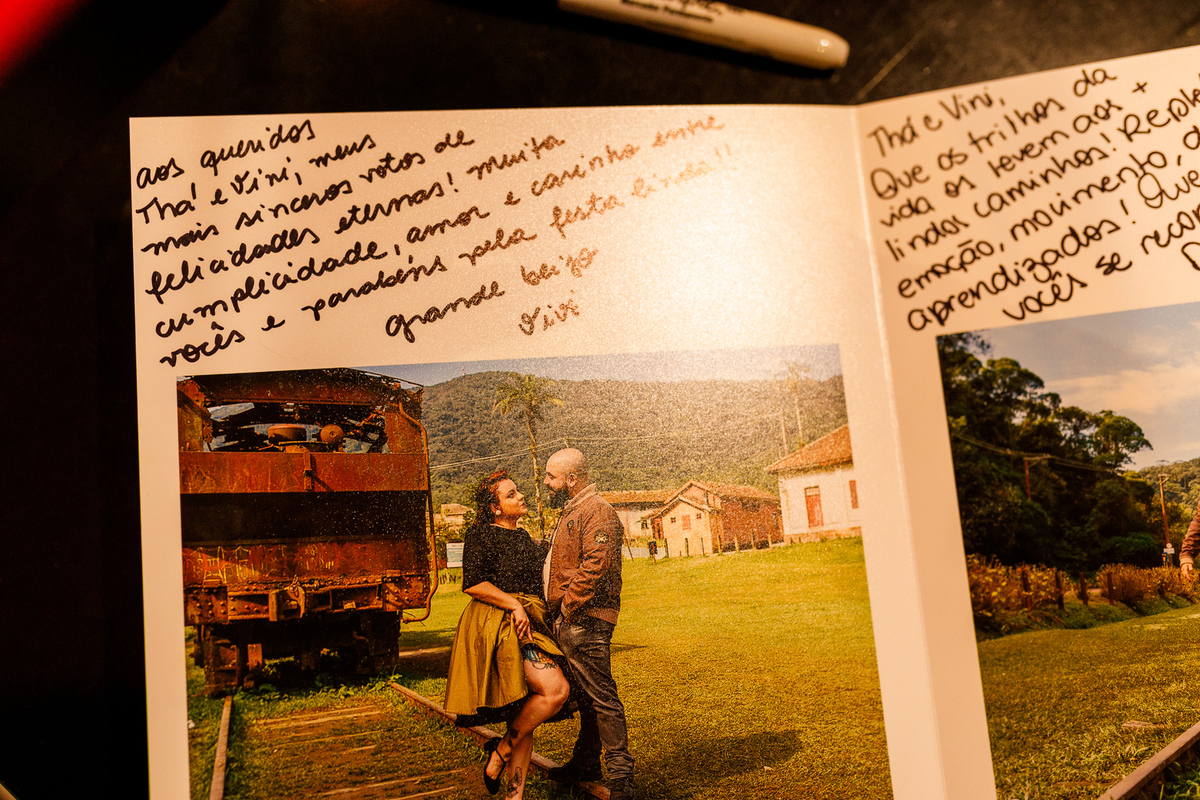 aos queridos
Thá e Vini, meus
mais sinceros votos de
felicidades eternas! Muita
cumplicidade, amor e carinho entre
vocês e parabéns pela festa linda!!
grande beijo
Vivi
Thá e Vini,
Que os trilhos da
vida os levem aos +
lindos caminhos!
emoção, movimento,
aprendizados! Que
vocês se